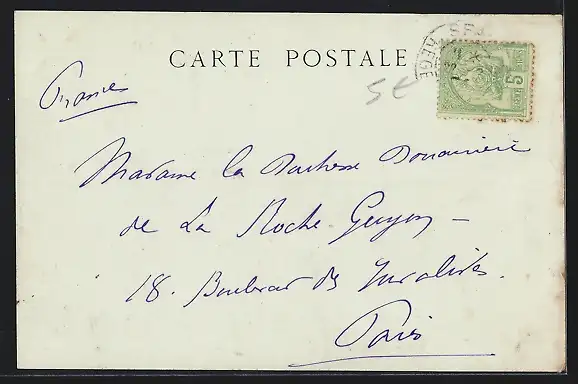 CARTE POSTALE
France
5€
Madame la Duchesse Douairière
de La Roche Guyon –
18. Boulevard des Invalides.
Paris